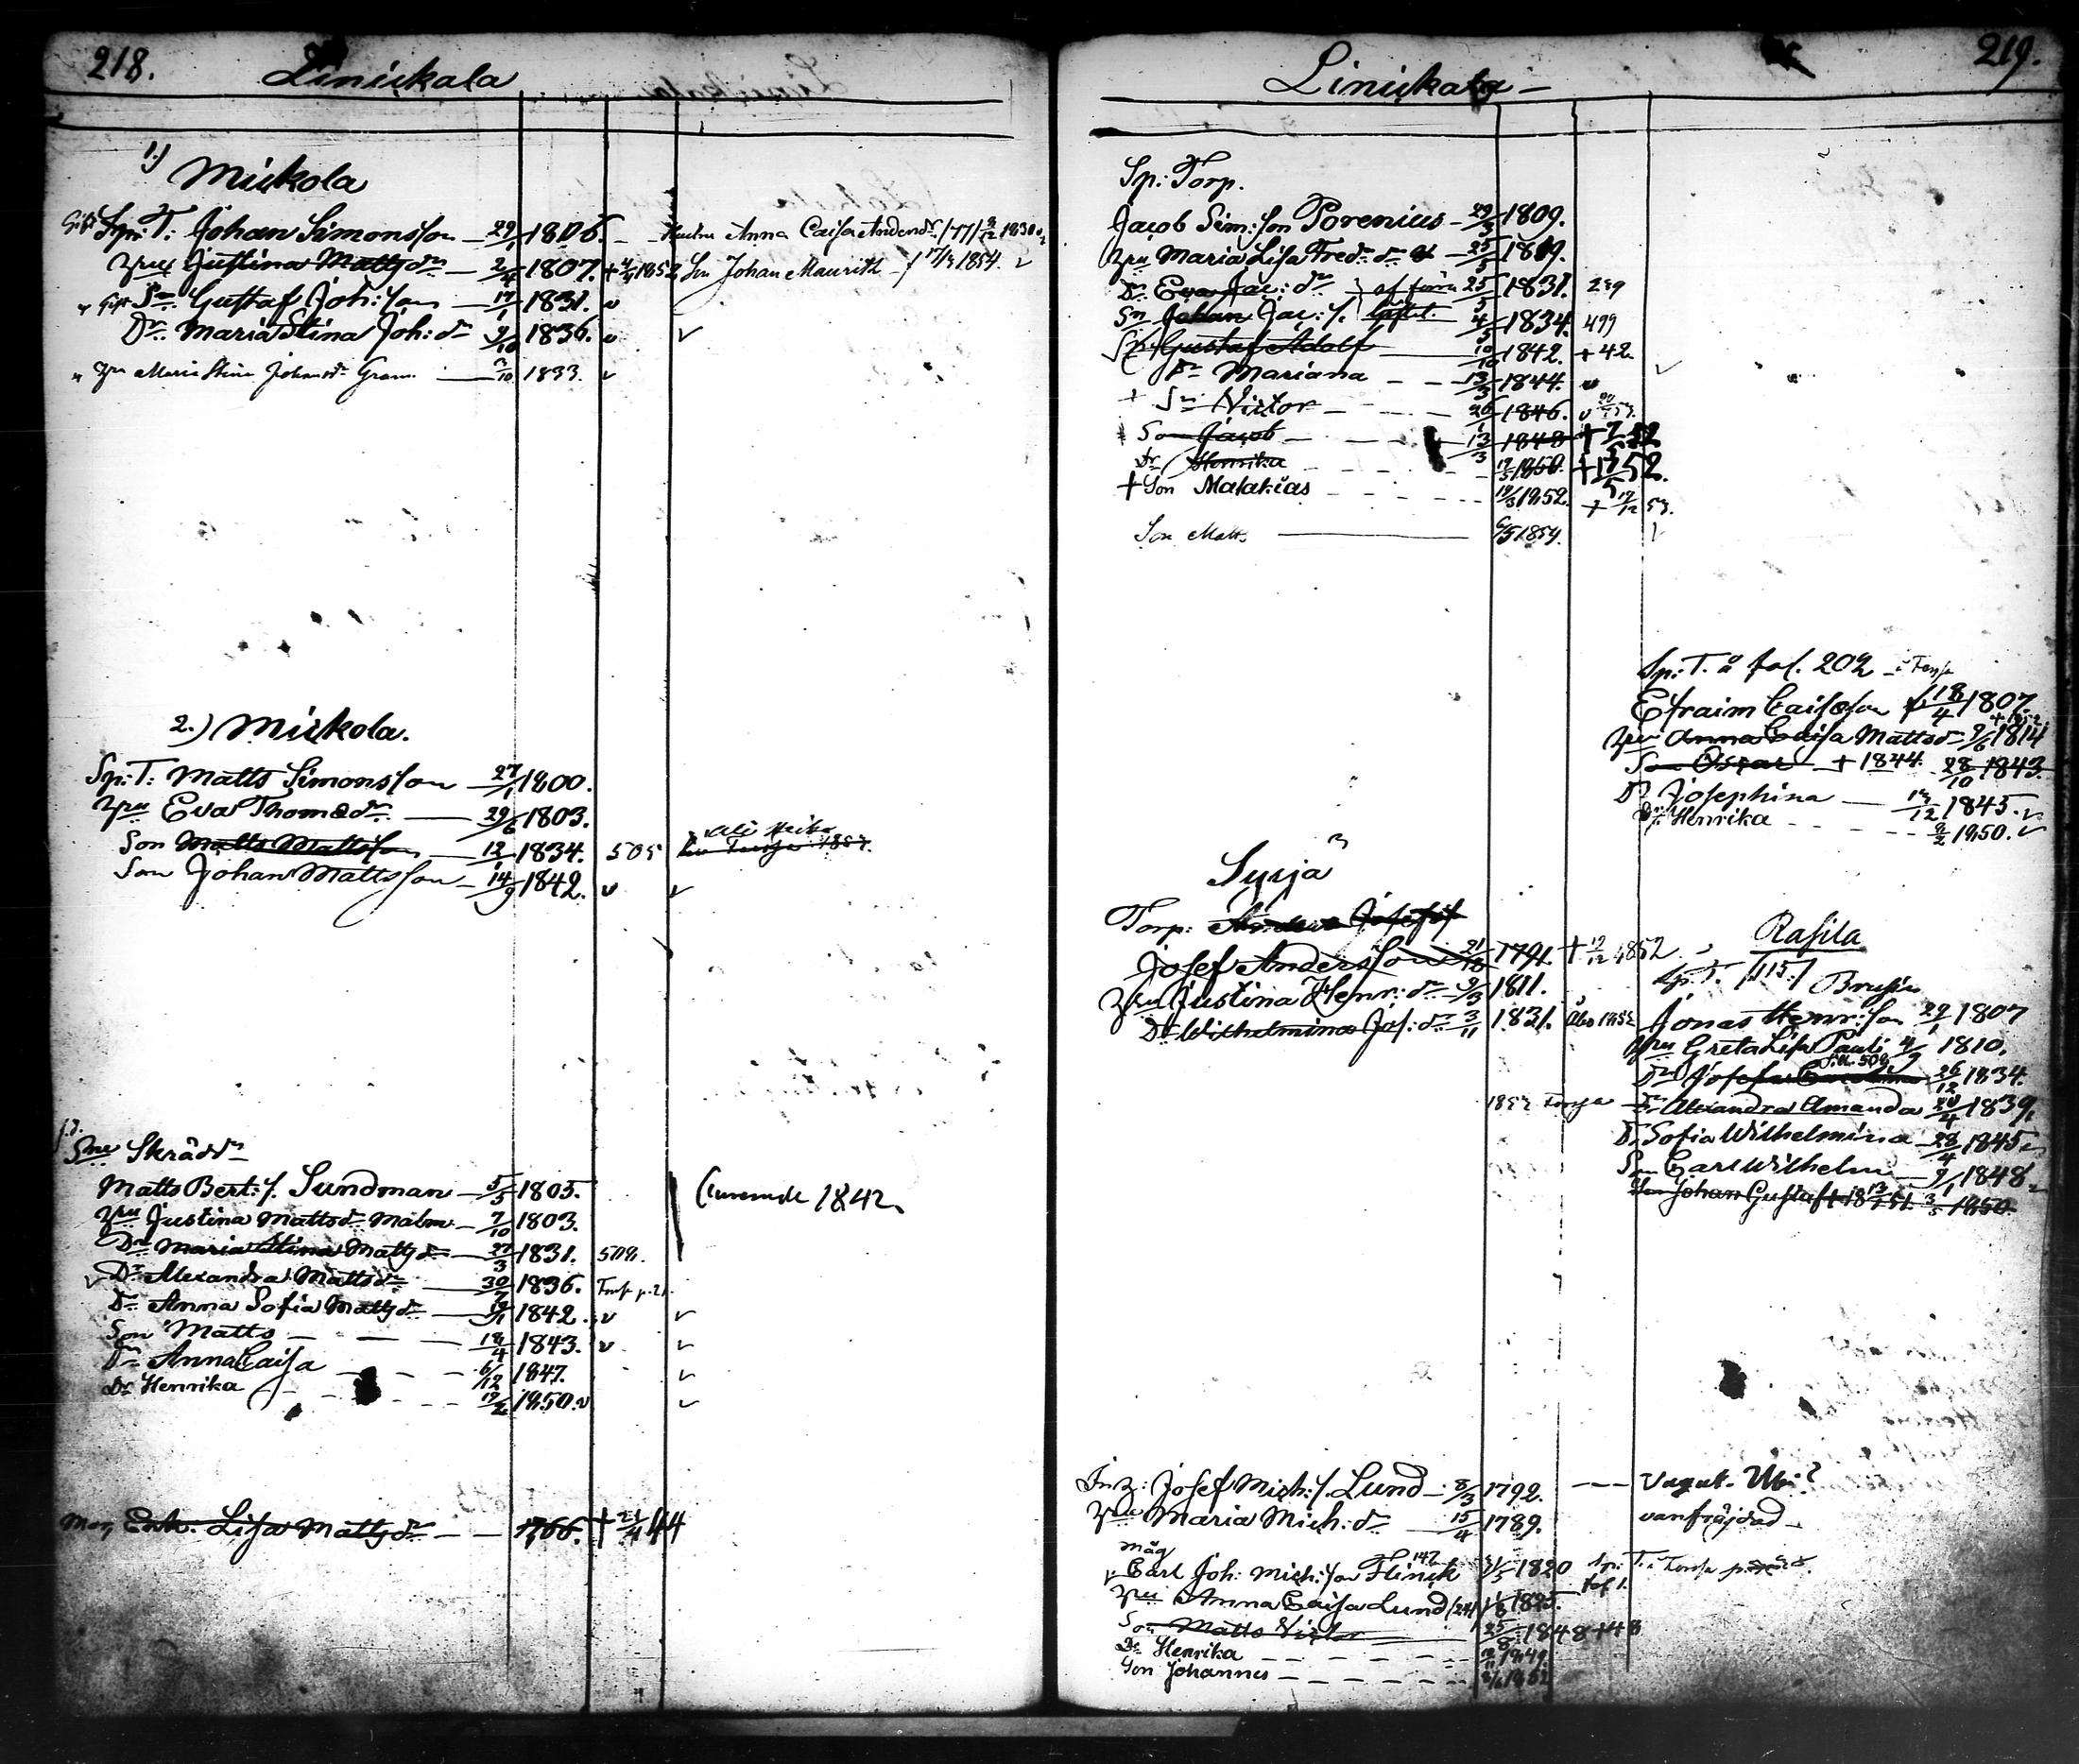 218.
Liniękala
1.) Miękola
Sp: T: Johan Simonsson 29/1 1806. Hustru Anna Caisa Andersdr /77/ 2/12 1830
Hru Justina Mattsdr 2/4 1807. + 4/4 1852 Son Johan Mauritz f 17/3 1854. v
Gift Sn Gustaf Joh: son 17/1 1831. v
Dr Maria Stina Joh: dr 9/10 1836. v v
Hru Maria Stina Johansdr Gram 1833. v
2.) Miękola.
Sp: T: Matts Simonsson 27/1 1800.
Hru Eva Thomædr 29/6 1803.
Son Matts Mattsson 12/1 1834. 505
Son Johan Mattsson 14/9 1842. v v
Sne Skrädd
Matts Bert: s. Sundman 5/5 1805. 1842.
Hru Justina Mattsdr Malm 7/10 1803.
Dr Maria Stina Mattsdr 27/3 1831. 509.
v Dr Alexandra Mattsdr 30/7 1836.
Dr Anna Sofia Mattsdr 1842. v v
Son Matts 18/4 1843. v v
Dr Anna Caisa 6/12 1847. v
Dr Henrika 1850. v v
Enk: Lisa Mattsdr 1766. + 44
219.
Liniękala
Sp: Torp.
Jacob Sim: son Porenius 29/3 1809.
Hru Maria Lisa Fred: dr 25/5 1809.
Dr Eva Jac: dr 25/5 1831. 239
Sn Johan Jac: s. 4/5 1834. 499
Sn Gustaf Adolf 10/10 1842. + 42.
Dr Mariana 13/3 1844. v v
+ Sn Victor 26/1 1846. v
Son Jacob 13/3 1848 + 52
Dr Henrika 1850. + 52.
+ Son Malakias 19/3 1852. + 17/12 53.
Son Matts 6/5 1854. v
Sp: T. å fol. 202
Efraim Caisason f 18/4 1807.
Hru Anna Caisa Mattsdr 9/6 1814 + 1852
Son Oscar + 1844. 28/10 1843.
Dr Josephina 1845. v
Dr Henrika 9/2 1850. v
Syrjä
Torp: Anders Josefss
Josef Andersson 21/12 1791. + 12/12 1852
Hru Justina Henr: dr 9/3 1811.
Dr Wilhelmina Jos: dr 3/11 1831. Åbo 1852
Rasila
Sp. T. /115./ Brusin
Jonas Henr: son 29/1 1807
Hru Greta Lisa Pauli 4/9 1810.
Dr Josefa Carolina 26/12 1834.
Dr Alexandra Amanda 20/4 1839.
Dr Sofia Wilhelmina 28/4 1845.
Son Carl Wilhelm 9/1 1848.
Son Johan Gustaf + 18 51. 3/5 1850.
Inh: Josef Mich: s. Lund 8/3 1792.
Hru Maria Mich: dr 15/4 1789. vanfräjdad
Måg
v Carl Joh: Mich: son Flinck 147 1820 Sp: T. i
Hru Anna Caisa Lund 1825.
Son Matts Victor 25/8 1848 + 48
Dr Henrika 1849.
Son Johannes 1852